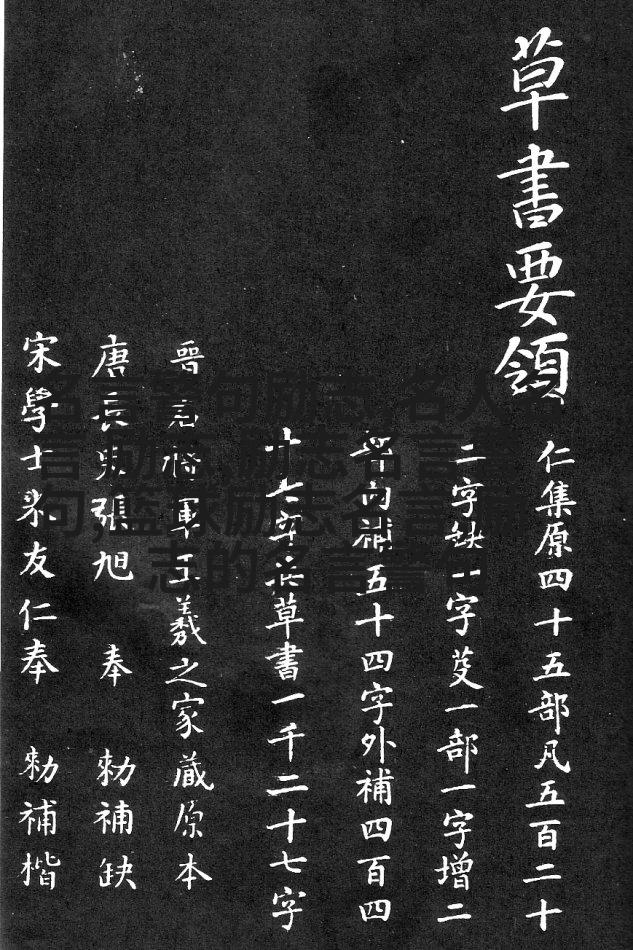 草書要領
仁集原四十五部凡五百二十
二字缺一字芟一部一字增二
部內補五十四字外補四百四
十七字共草書一千二十七字
晉右將軍王羲之家藏原本
唐長史張旭 奉 勑補缺
宋學士米友仁奉 勑補楷
名言警句励志,名人名
言,励志,励志名言警
句,篮球励志名言,励
志的名言警句